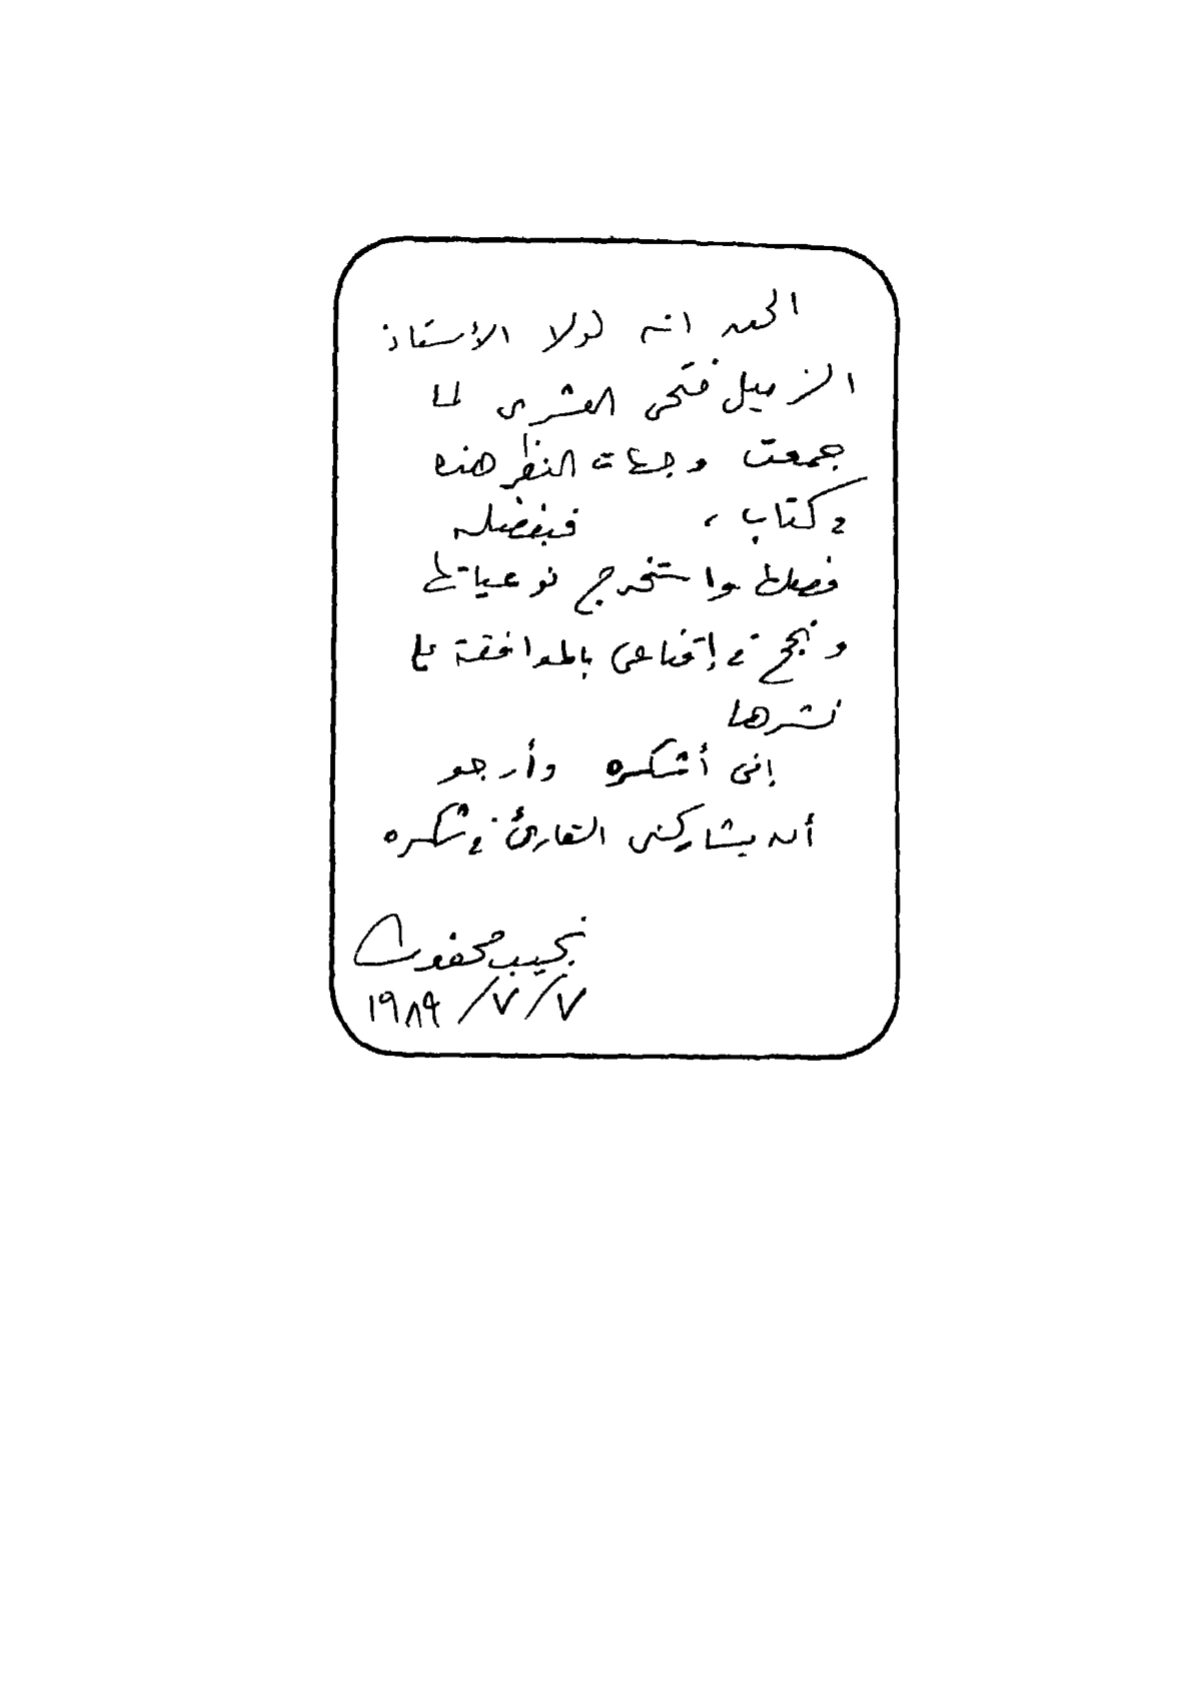 الحق انه لولا الأستاذ
الزميل فتحى العشرى لما
جمعت وجهات النظر هذه
فى كتاب ، فبفضله
فصلها واستخرج نوعياتها
ونجح فى إقناعى بالموافقة على
نشرها
إنى أشكره وأرجو
أن يشاركنى القارئ فى شكره
نجيب محفوظ
٧/٧/ ١٩٨٩